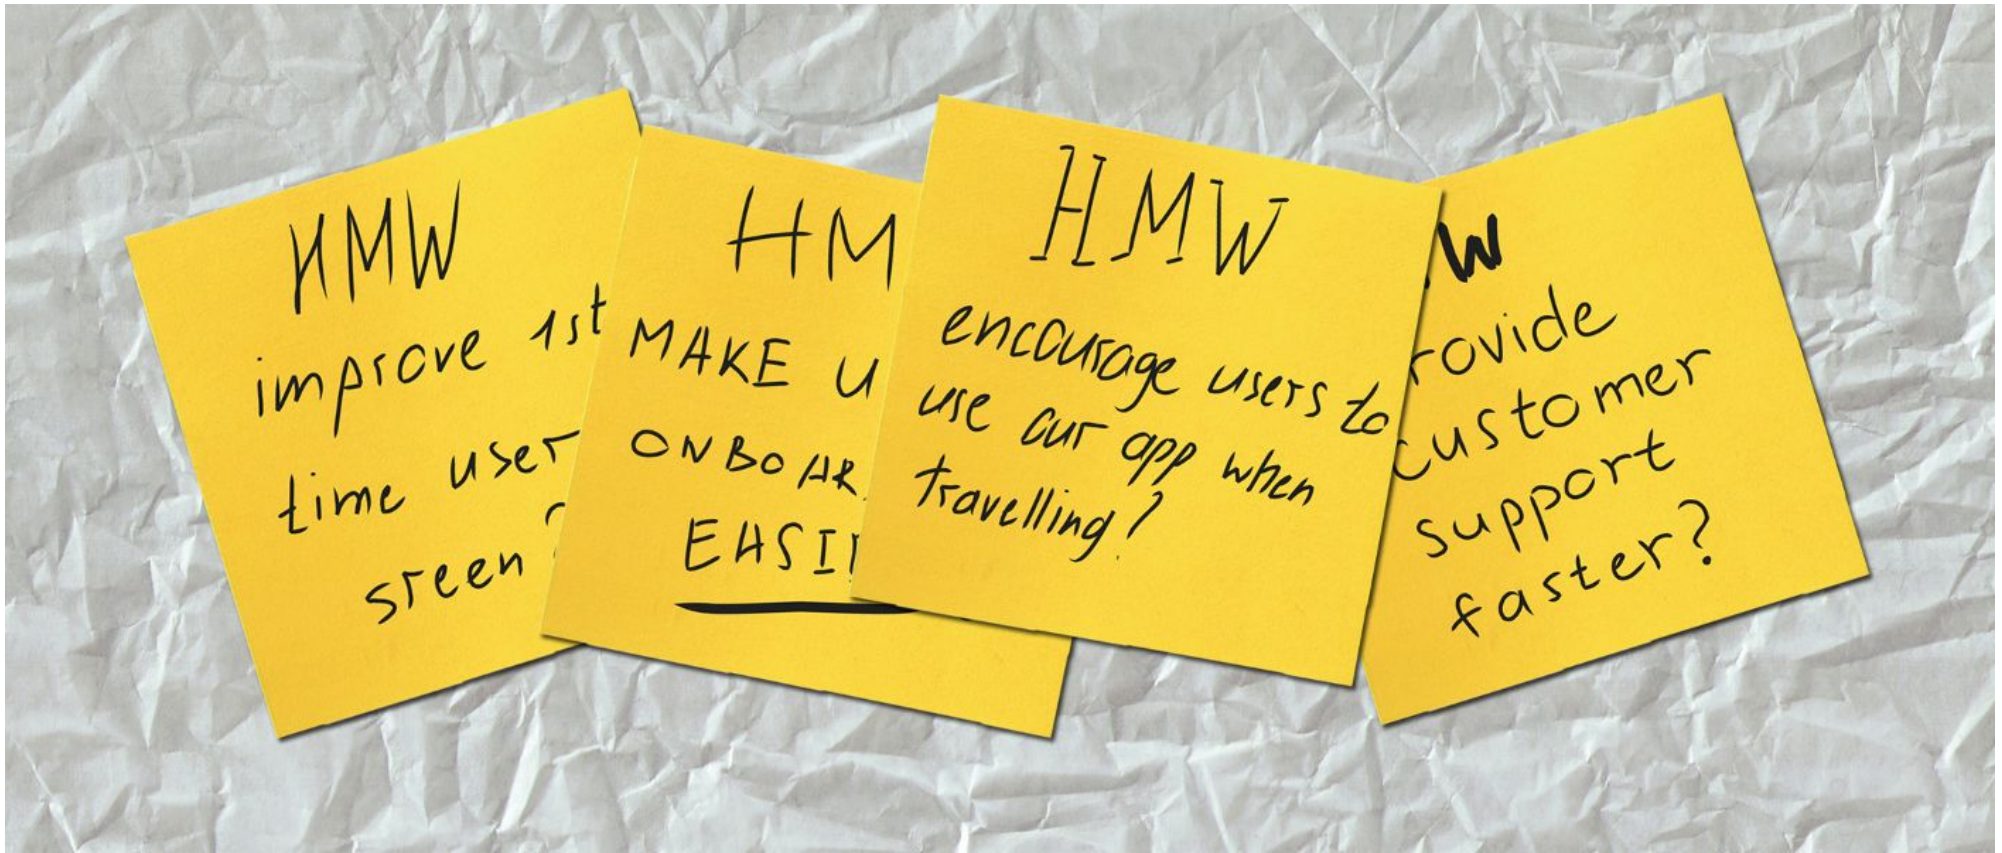 HMW
improve 1st
time user
sreen ?
HM
MAKE U
ONBOAR
EASI
HMW
encourage users to
use our app when
travelling?
W
rovide
customer
support
faster?